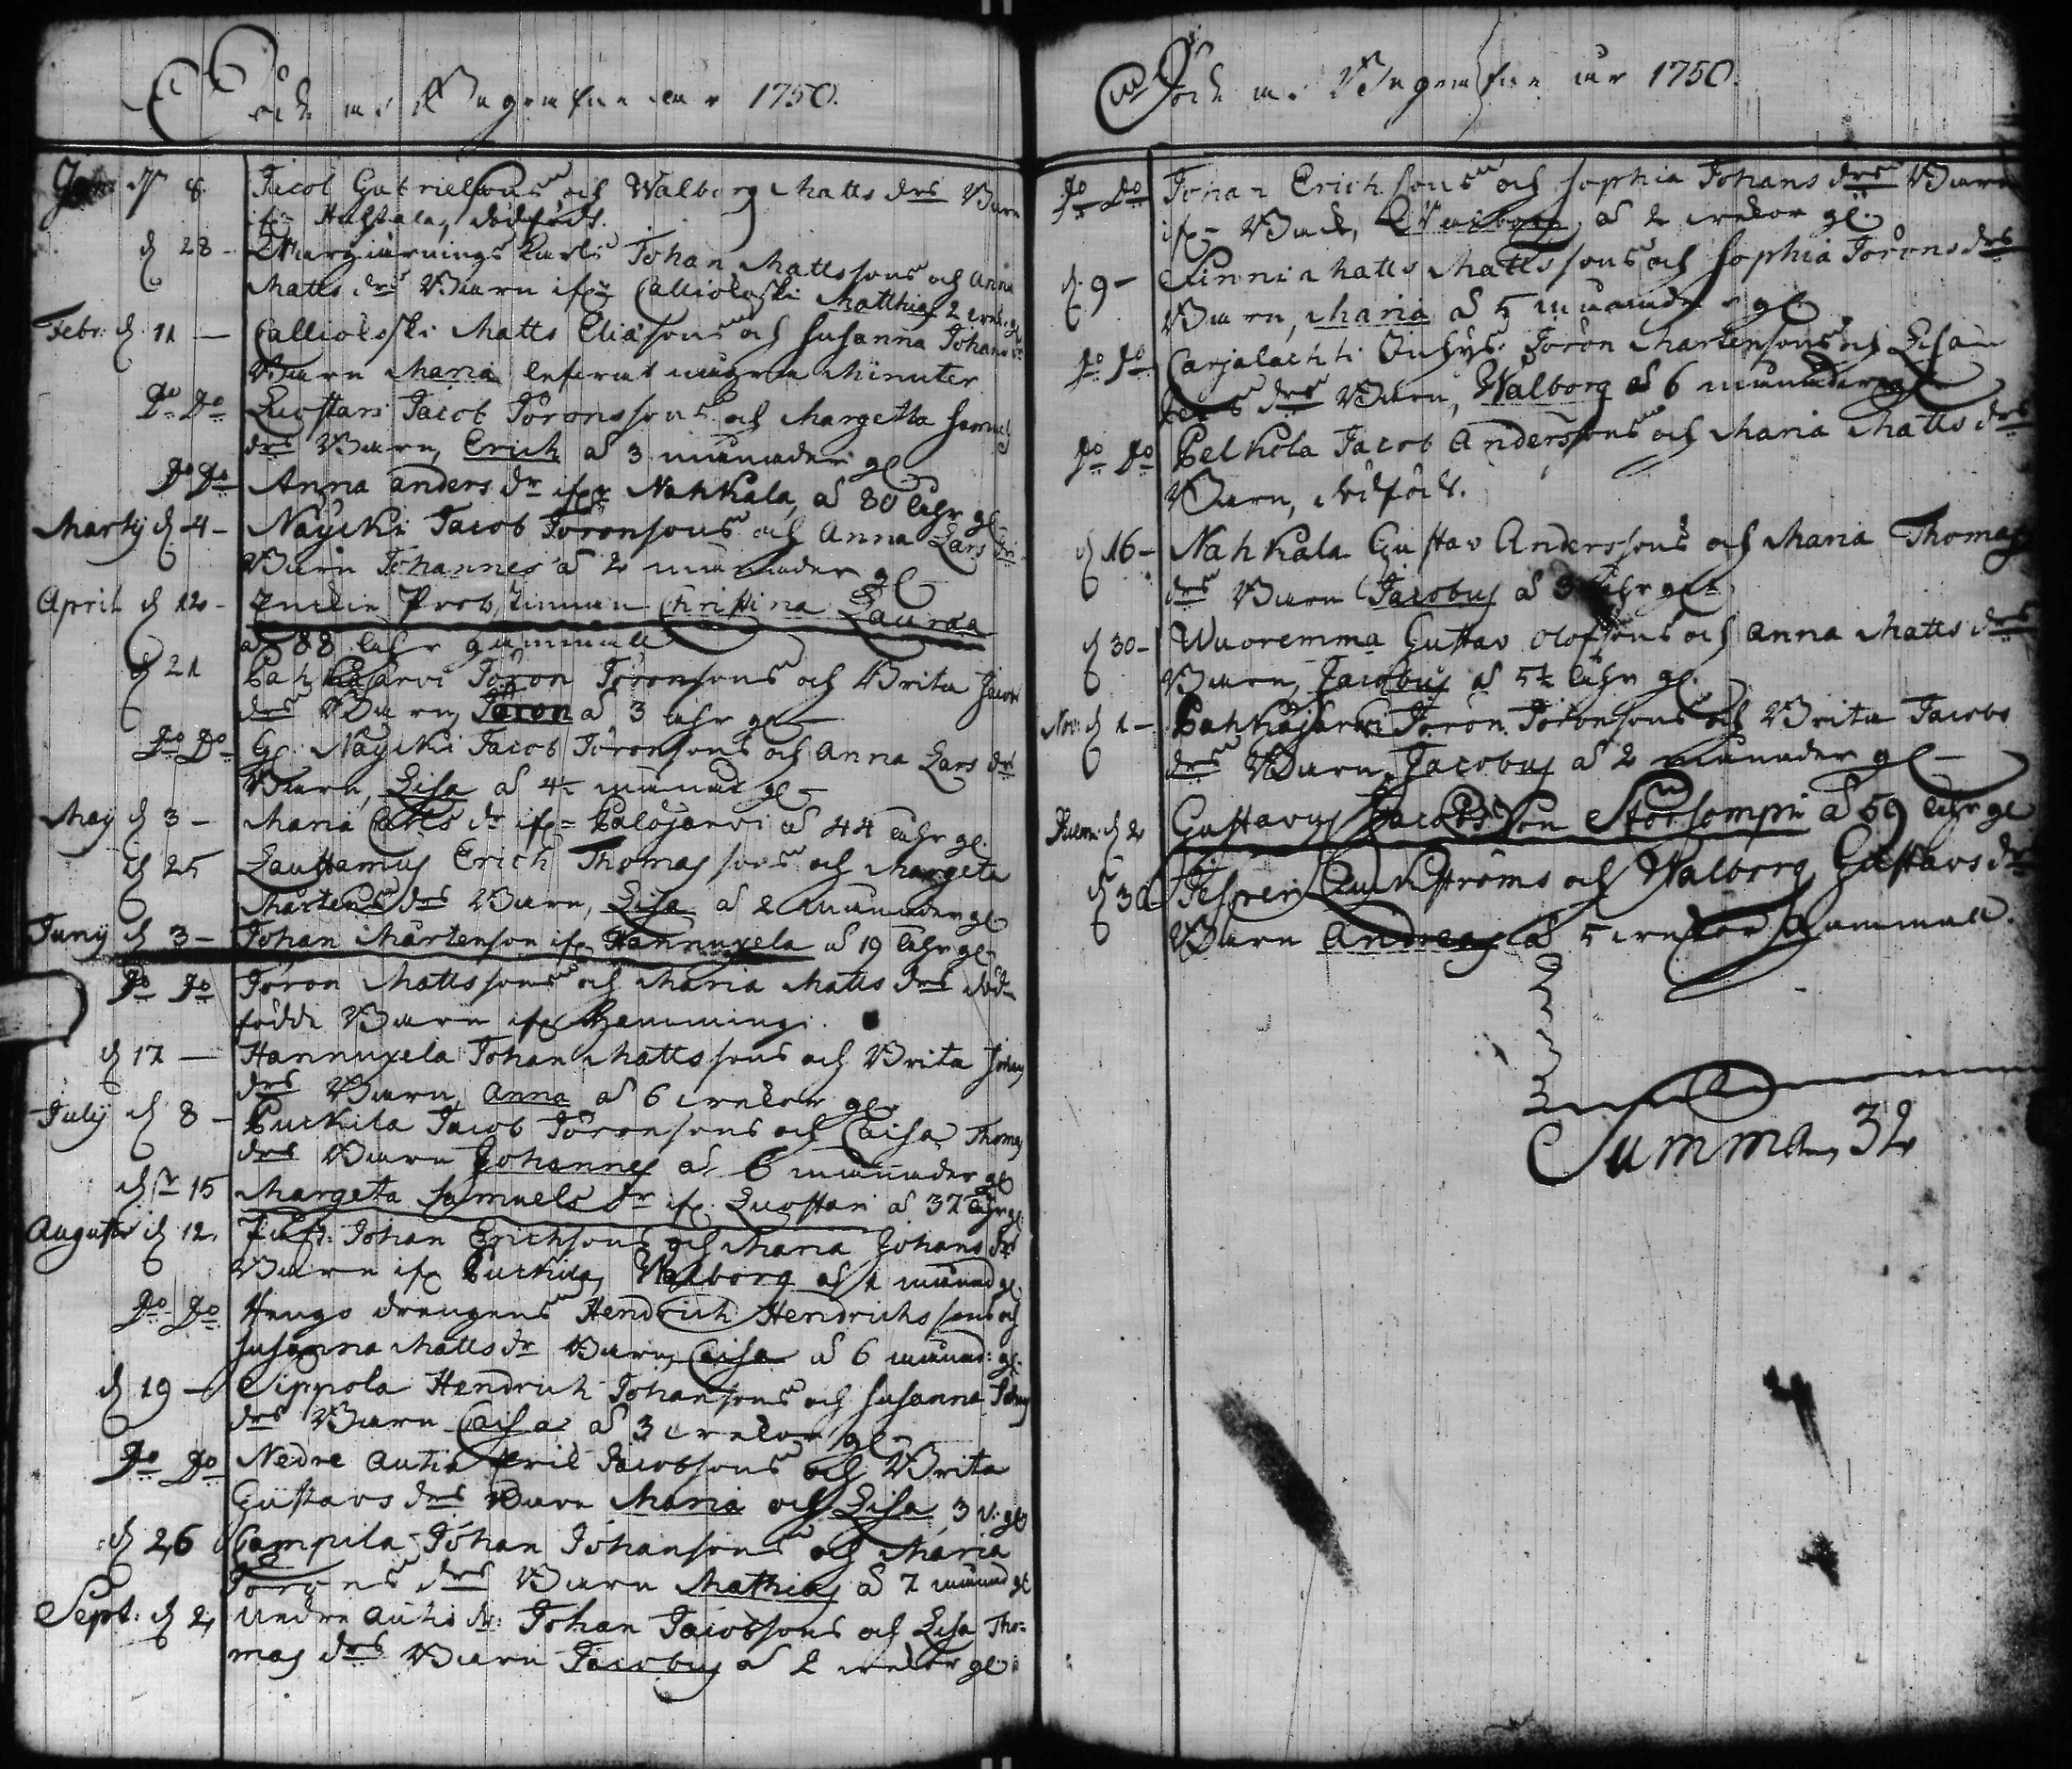 Döde och Begrafne åhr 1750.
Jan: d 8. Jacob Gabrielsons och Walborg Matts drs Barn
ifr. Huhtala, dödfödt.
d 28 - Johan Mattssons och Anna
Matts drs Barn ifr Callioloski Matthias 2 wek. gl
Febr: d 11 — Callioloski Matts Eliæsons och Susanna Johans drs
Barn Maria leferat några Minuter
Do Do Luostari Jacob Jöransons och Margetta Samuels
drs Barn, Erich af 3 månader gl
Do Do Anna Anders dr ifr Nahkala, af 80 åhr gl
Martij d 4 - Näycki Jacob Jöransons och Anna Lars dr
Barn Johannes af 2 månader gl
April d 12 - Enckie Prostinnan Christina Lauræa
af 88 åhr gammal
d 21 Pahkajärvi Jöron Jöronsons och Brita Jacobs
drs Barn, Jöron af 3 åhr gl —
Do Do G. Näycki Jacob Jöronsons och Anna Lars drs
Barn, Lisa af 4½ månad gl
May d 3 - Maria Matts dr ifr Palojärvi af 44 åhr gl.
d 25 Lauttamus Erich Thomas sons och Margeta
Mårtens drs Barn, Lisa af 2 månader gl
Junij d 3 - Johan Mårtenson ifr Hannuxela af 19 åhr gl
Do Do Jöron Mattssons och Maria Matts drs död-
födde Barn ifr Hemmingi.
d 17 — Hannuxela Johan Mattssons och Brita Johans
drs Barn, Anna af 6 wekor gl
Julij d 8 - Purkila Jacob Jöronsons och Caisa Thomas
drs Barn Johannes af 6 månader gl
d 15 Margeta Samuels dr ifr Luostari af 37 åhr gl.
Augusti d 12. Johan Erichsons och Maria Johans drs
Barn ifr Purkila, Walborg af 1 månad gl
Do Do drengens Hendrich Hendrichs sons och
Susanna Matts dr Barn, Caisa af 6 månad: gl.
d 19 - Sippola Hendrich Johansons och Susanna Johans
drs Barn Caisa af 3 wekor gl
Do Do Nedre Autio Jacobsons och Brita
Gustavs drs Barn Maria och Lisa, 3 v. gl
d 26 Lampila Johan Johansons och Maria
Jörens drs Barn Mathias af 7 månad gl
Sept: d 2, Nedre Autio Johan Jacobsons och Lisa Tho=
mas drs Barn Jacobus af 2 wekor gl
Döde och Begrafne åhr 1750.
Do Do Johan Erich sons och Sophia Johans drs Barn
ifr Walborg af 2 wekor gl.
d. 9 - Kinni Matts Mattssons och Sophia Jörons drs
Barn, Maria af 5 månader gl
Do Do Carjalachti Jöron Mårtensons och Lisa
drs Barn, Walborg af 6 månader gl
Do Do Pelkola Jacob Anderssons och Maria Matts drs
Barn, dödfödt.
d 16 - Nahkala Gustav Anderssons och Maria Thomas
drs Barn Jacobus af 3 åhr gl
d 30 - Wuoremma Gustav Olofsons och Anna Matts drs
Barn, Jacobus af 5½ åhr gl.
Nov: d 1 - Pahkajärvi Jöron Jöronsons och Brita Jacobs
drs Barn, Jacobus af 2 månader gl —
d 2 Gustavus Jacobs Son Storsompi af 59 åhr gl
d 30 och Walborg Gustavs drs
Barn Andreas af 5 wekor gammal.
Summa, 32